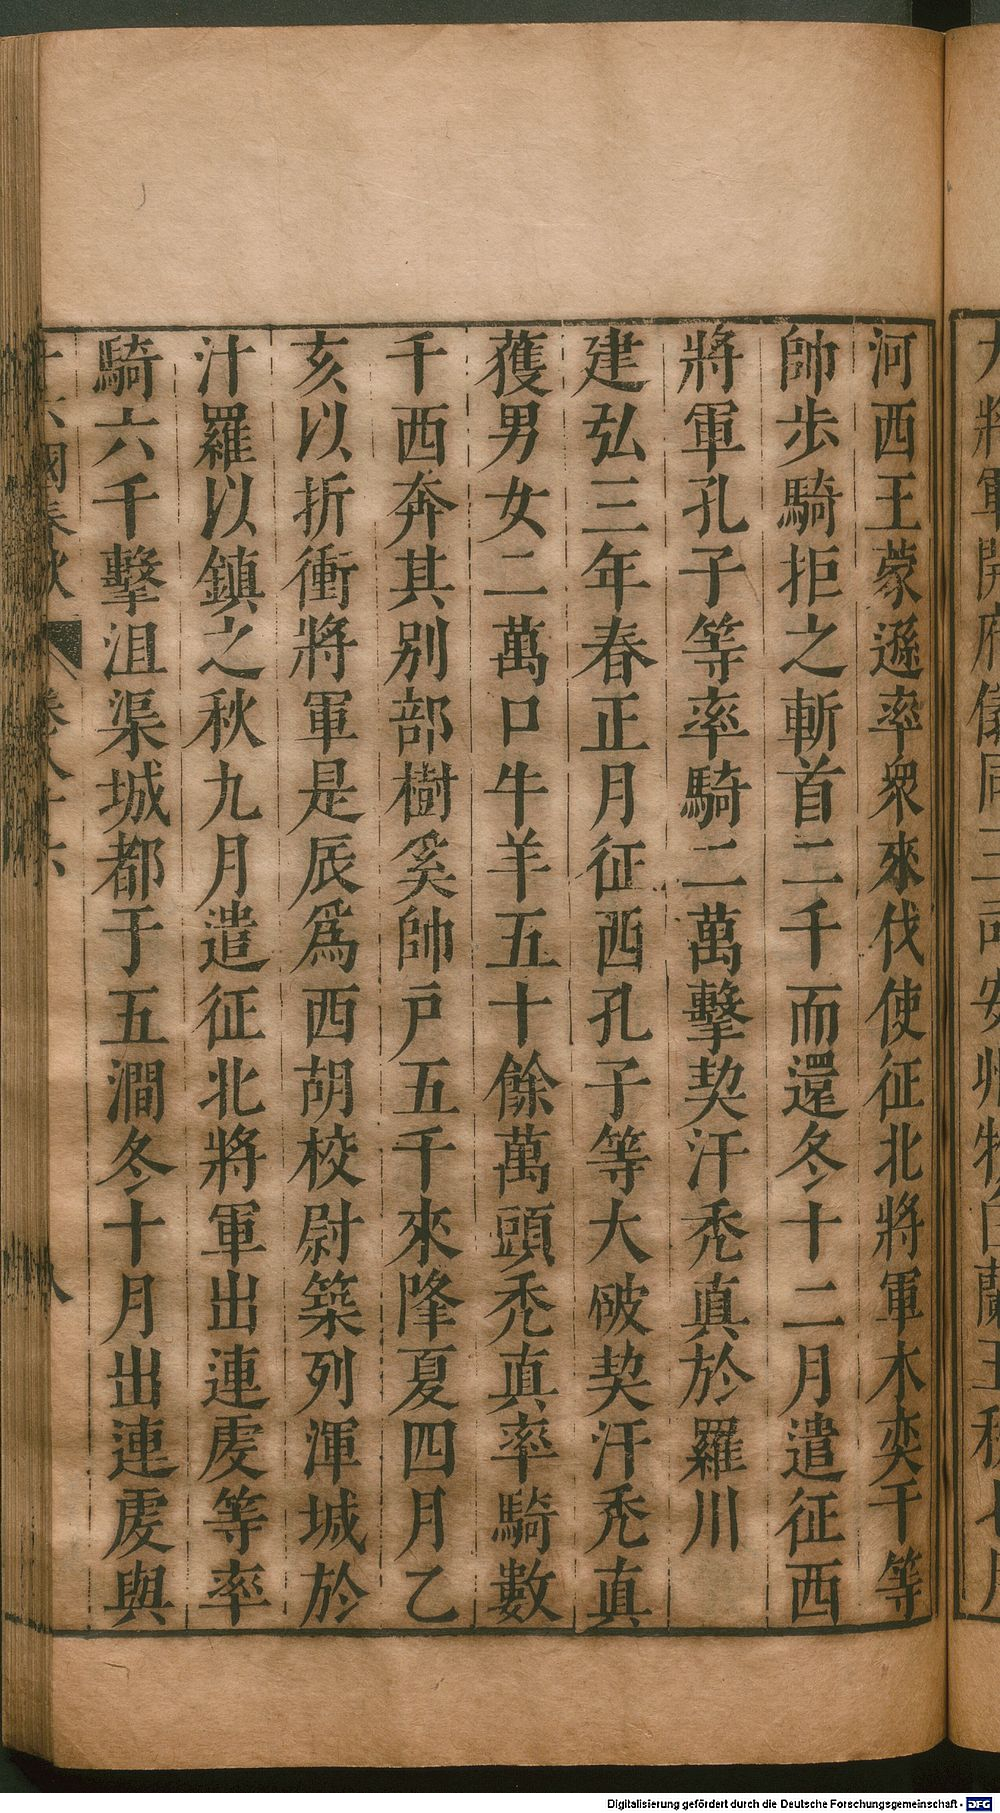 河西王蒙遜率衆來伐使征北將軍木奕干等
帥步騎拒之斬首二千而還冬十二月遣征西
將軍孔子等率騎二萬擊契汗禿真於羅川
建弘三年春正月征西孔子等大破契汗禿真
獲男女二萬口牛羊五十餘萬頭禿真率騎數
千西奔其別部樹奚帥戸五千來降夏四月乙
亥以折衝將軍是辰爲西胡校尉築列渾城於
汁羅以鎮之秋九月遣征北將軍出連虔等率
騎六千擊沮渠城都于五澗冬十月出連虔與
國春秋 卷八十六 八
Digitalisierung gefördert durch die Deutsche Forschungsgemeinschaft - DFG